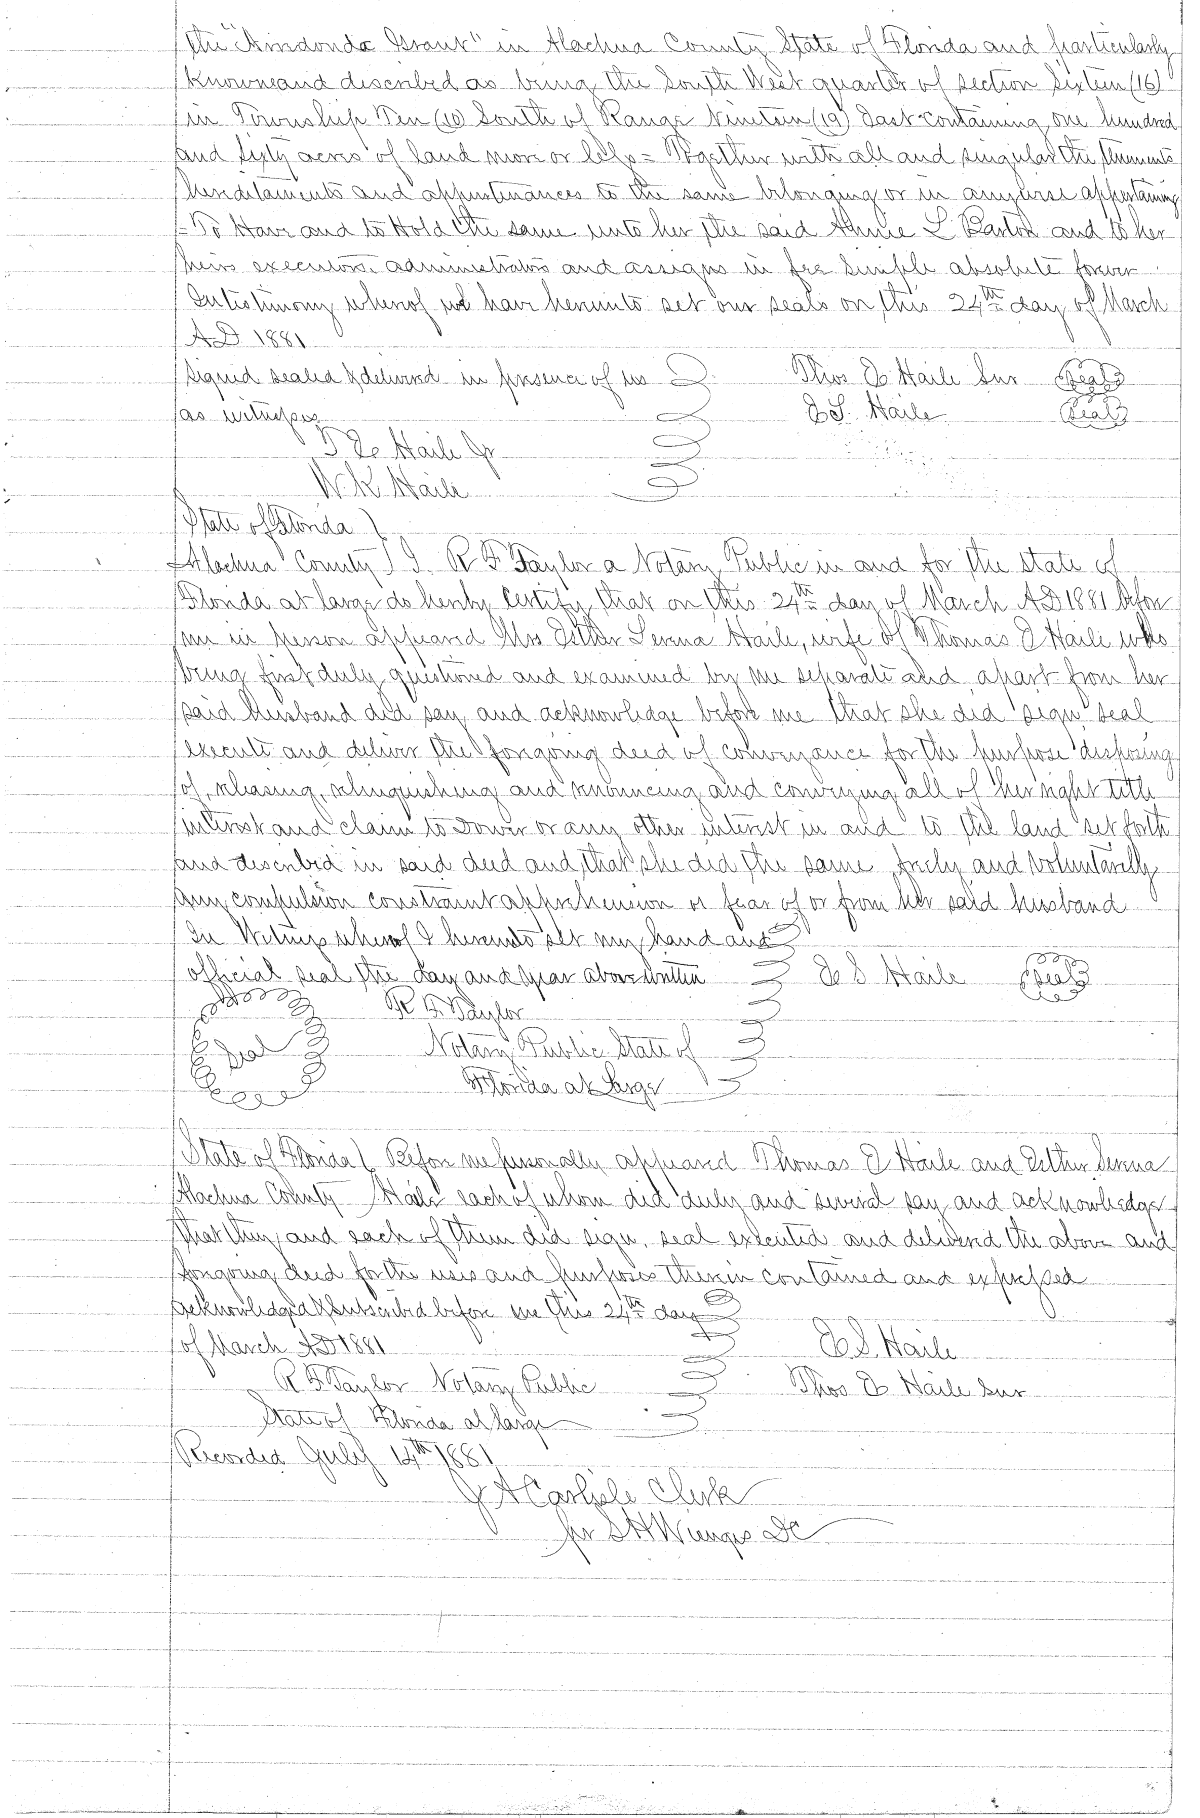 the "Arredonda Grant" in Alachua County State of Florida and particularly
known and described as being the South West quarter of section Sixteen (16)
in Township Ten (10) South of Range Nineteen (19) East containing one hundred
and sixty acres of land more or less = Together with all and singular the tenements
hereditaments and appurtenances to the same belonging or in anywise appertaining
- To Have and to Hold the same unto her the said Annie L Barton and to her
heirs executors administrators and assigns in fee simple absolute forever
In testimony whereof we have hereunto set our seals on this 24th day of March
A.D 1881
Signed sealed & delivered in presence of us Thos E Haile Snr Seal
as witnesses E S. Haile Seal
T E Haile Jr
W K Haile
State of Florida
Alachua County I. R F Taylor a Notary Public in and for the State of
Florida at large do hereby certify that on this 24th day of March AD 1881 before
me in person appeared Mrs Esther Serena Haile, wife of Thomas E Haile who
being first duly questioned and examined by me separate and apart from her
said husband did say and acknowledge before me that she did sign seal
execute and deliver the foregoing deed of conveyance for the purpose disposing
of, releasing, relinquishing and renouncing and conveying all of her right title
interest and claim to Dower or any other interest in and to the land set forth
and described in said deed and that she did the same freely and voluntarily
any compulsion constraint apprehension or fear of or from her said husband
In Witness whereof I hereunto set my hand and
official seal the day and year above written E S Haile Seal
R F Taylor
Seal Notary Public State of
Florida at Large
State of Florida Before me personally appeared Thomas E Haile and Esther Serena
Alachua County Haile each of whom did duly and several say and acknowledge
that they and each of them did sign, seal executed and delivered the above and
foregoing deed for the uses and purposes therein contained and expressed
Acknowledged & Subscribed before me this 24th day
of March AD 1881 E S. Haile
R F Taylor Notary Public Thos E Haile Snr
State of Florida at large
Recorded July 14th 1881
J A Carlisle Clerk
per S H Wienges DC